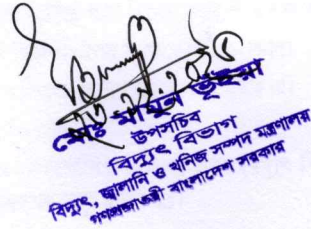 মোঃ মামুন ভূইয়া
উপসচিব
বিদ্যুৎ বিভাগ
বিদ্যুৎ, জ্বালানি ও খনিজ সম্পদ মন্ত্রণালয়
গণপ্রজাতন্ত্রী বাংলাদেশ সরকার